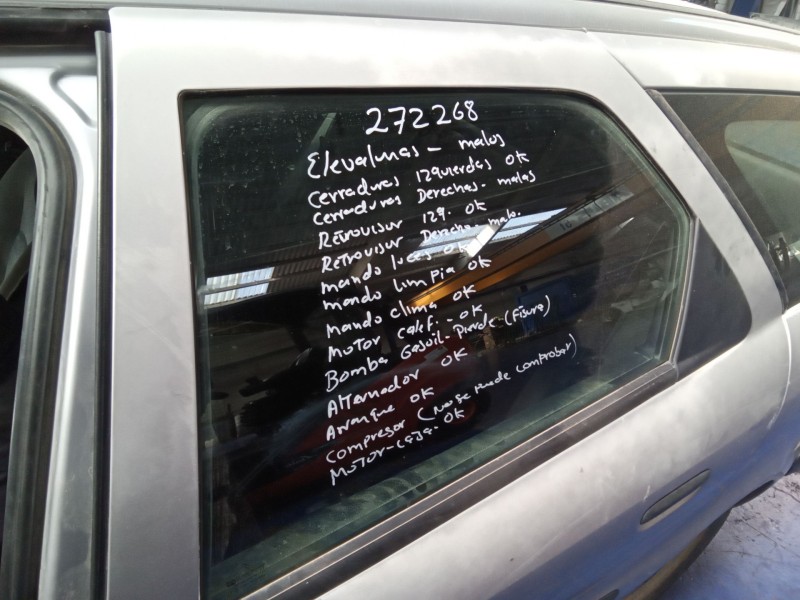 272268
Elevalunas - malos
Cerraduras Izquierdas OK
Cerraduras Derechas - malas
Retrovisor Izq. OK
Retrovisor Derecho - malo.
mando luces OK
mando limpia OK
mando clima OK
Motor calef. - OK
Bomba Gasoil - Pierde (Fisura)
Alternador OK
Arranque OK
Compresor (No se Puede Comprobar)
Motor - caja. OK